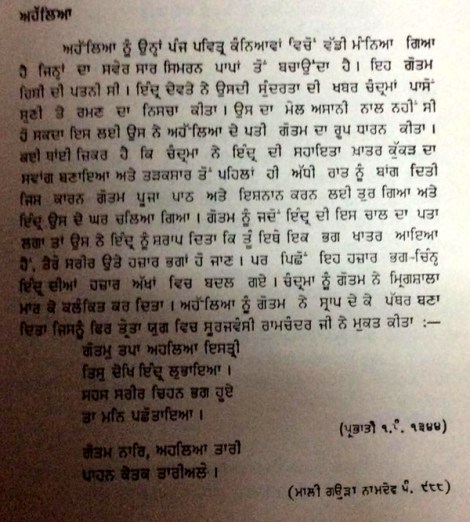 ਅਹੱਲਿਆ
ਅਹੱਲਿਆ ਨੂੰ ਉਨ੍ਹਾਂ ਪੰਜ ਪਵਿਤ੍ਰ ਕੰਨਿਆਵਾਂ ਵਿਚੋਂ ਵੱਡੀ ਮੰਨਿਆ ਗਿਆ
ਹੈ ਜਿਨ੍ਹਾਂ ਦਾ ਸਵੇਰ ਸਾਰ ਸਿਮਰਨ ਪਾਪਾਂ ਤੋਂ ਬਚਾਉਂਦਾ ਹੈ । ਇਹ ਗੌਤਮ
ਰਿਸ਼ੀ ਦੀ ਪਤਨੀ ਸੀ । ਇੰਦ੍ਰ ਦੇਵਤੇ ਨੇ ਉਸਦੀ ਸੁੰਦਰਤਾ ਦੀ ਖਬਰ ਚੰਦ੍ਰਮਾਂ ਪਾਸੋਂ
ਸੁਣੀ ਤੇ ਰਮਣ ਦਾ ਨਿਸਚਾ ਕੀਤਾ । ਉਸ ਦਾ ਮੇਲ ਅਸਾਨੀ ਨਾਲ ਨਹੀਂ ਸੀ
ਹੋ ਸਕਦਾ ਇਸ ਲਈ ਉਸ ਨੇ ਅਹੱਲਿਆ ਦੇ ਪਤੀ ਗੌਤਮ ਦਾ ਰੂਪ ਧਾਰਨ ਕੀਤਾ ।
ਕਈ ਥਾਂਈ ਜ਼ਿਕਰ ਹੈ ਕਿ ਚੰਦ੍ਰਮਾ ਨੇ ਇੰਦ੍ਰ ਦੀ ਸਹਾਇਤਾ ਖ਼ਾਤਰ ਕੁੱਕੜ ਦਾ
ਸਵਾਂਗ ਬਣਾਇਆ ਅਤੇ ਤੜਕਸਾਰ ਤੋਂ ਪਹਿਲਾਂ ਹੀ ਅੱਧੀ ਰਾਤ ਨੂੰ ਬਾਂਗ ਦਿਤੀ
ਜਿਸ ਕਾਰਨ ਗੌਤਮ ਪੂਜਾ ਪਾਠ ਅਤੇ ਇਸ਼ਨਾਨ ਕਰਨ ਲਈ ਤੁਰ ਗਿਆ ਅਤੇ
ਇੰਦ੍ਰ ਉਸ ਦੇ ਘਰ ਚਲਿਆ ਗਿਆ । ਗੌਤਮ ਨੂੰ ਜਦੋਂ ਇੰਦ੍ਰ ਦੀ ਇਸ ਚਾਲ ਦਾ ਪਤਾ
ਲਗਾ ਤਾਂ ਉਸ ਨੇ ਇੰਦ੍ਰ ਨੂੰ ਸਰਾਪ ਦਿਤਾ ਕਿ ਤੂੰ ਇਥੇ ਇਕ ਭਗ ਖਾਤਰ ਆਇਆ
ਹੈਂ, ਤੇਰੇ ਸਰੀਰ ਉਤੇ ਹਜ਼ਾਰ ਭਗਾਂ ਹੋ ਜਾਣ । ਪਰ ਪਿਛੋਂ ਇਹ ਹਜ਼ਾਰ ਭਗ-ਚਿੰਨ੍ਹ
ਇੰਦ੍ਰ ਦੀਆਂ ਹਜ਼ਾਰ ਅੱਖਾਂ ਵਿਚ ਬਦਲ ਗਏ । ਚੰਦ੍ਰਮਾਂ ਨੂੰ ਗੌਤਮ ਨੇ ਮ੍ਰਿਗਸ਼ਾਲਾ
ਮਾਰ ਕੇ ਕਲੰਕਿਤ ਕਰ ਦਿਤਾ । ਅਹੱਲਿਆ ਨੂੰ ਗੌਤਮ ਨੇ ਸ੍ਰਾਪ ਦੇ ਕੇ ਪੱਥਰ ਬਣਾ
ਦਿਤਾ ਜਿਸਨੂੰ ਫਿਰ ਤ੍ਰੇਤਾ ਯੁਗ ਵਿਚ ਸੂਰਜਵੰਸੀ ਰਾਮਚੰਦਰ ਜੀ ਨੇ ਮੁਕਤ ਕੀਤਾ :—
ਗੌਤਮੁ ਤਪਾ ਅਹਲਿਆ ਇਸਤ੍ਰੀ
ਤਿਸੁ ਦੇਖਿ ਇੰਦ੍ਰ ਲੁਭਾਇਆ ।
ਸਹਸ ਸਰੀਰ ਚਿਹਨ ਭਗ ਹੂਏ
ਤਾ ਮਨਿ ਪਛੋਤਾਇਆ ।
(ਪ੍ਰਭਾਤੀ ੧. ਪੰ. ੧੩੪੪)
ਗੌਤਮ ਨਾਰਿ, ਅਹਲਿਆ ਤਾਰੀ
ਪਾਹਨ ਕੇਤਕ ਤਾਰੀਅਲੇ ।
(ਮਾਲੀ ਗਉੜਾ ਨਾਮਦੇਵ ਪੰ. ੯੮੮)